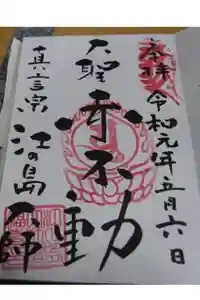 奉拝
令和元年五月六日
大聖不動
真言宗
江の島
大師